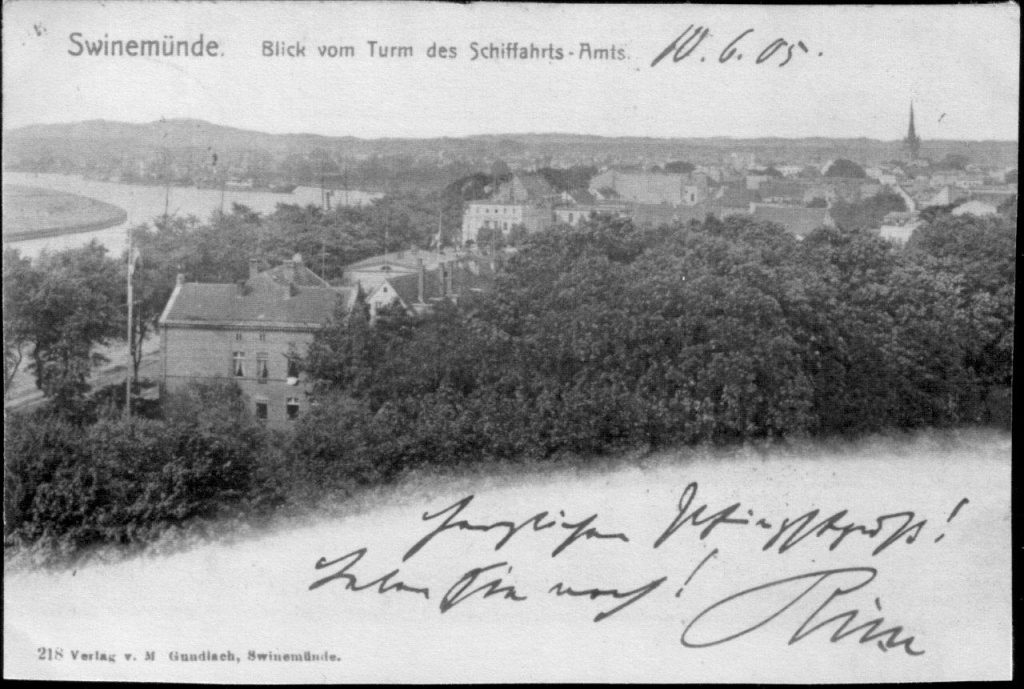 Swinemünde. Blick vom Turm des Schiffahrts-Amts. 10.6.05.
Herzlichen Pfingstgruß!
Sie
218 Verlag v. M Gundlach, Swinemünde.